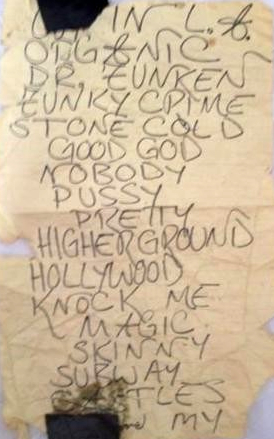 IN L.A.
ORGANIC
DR. FUNKEN
FUNKY CRIME
STONE COLD
GOOD GOD
NOBODY
PUSSY
PRETTY
HIGHERGROUND
HOLLYWOOD
KNOCK ME
MAGIC
SKINNY
SUBWAY
CASTLES
MY